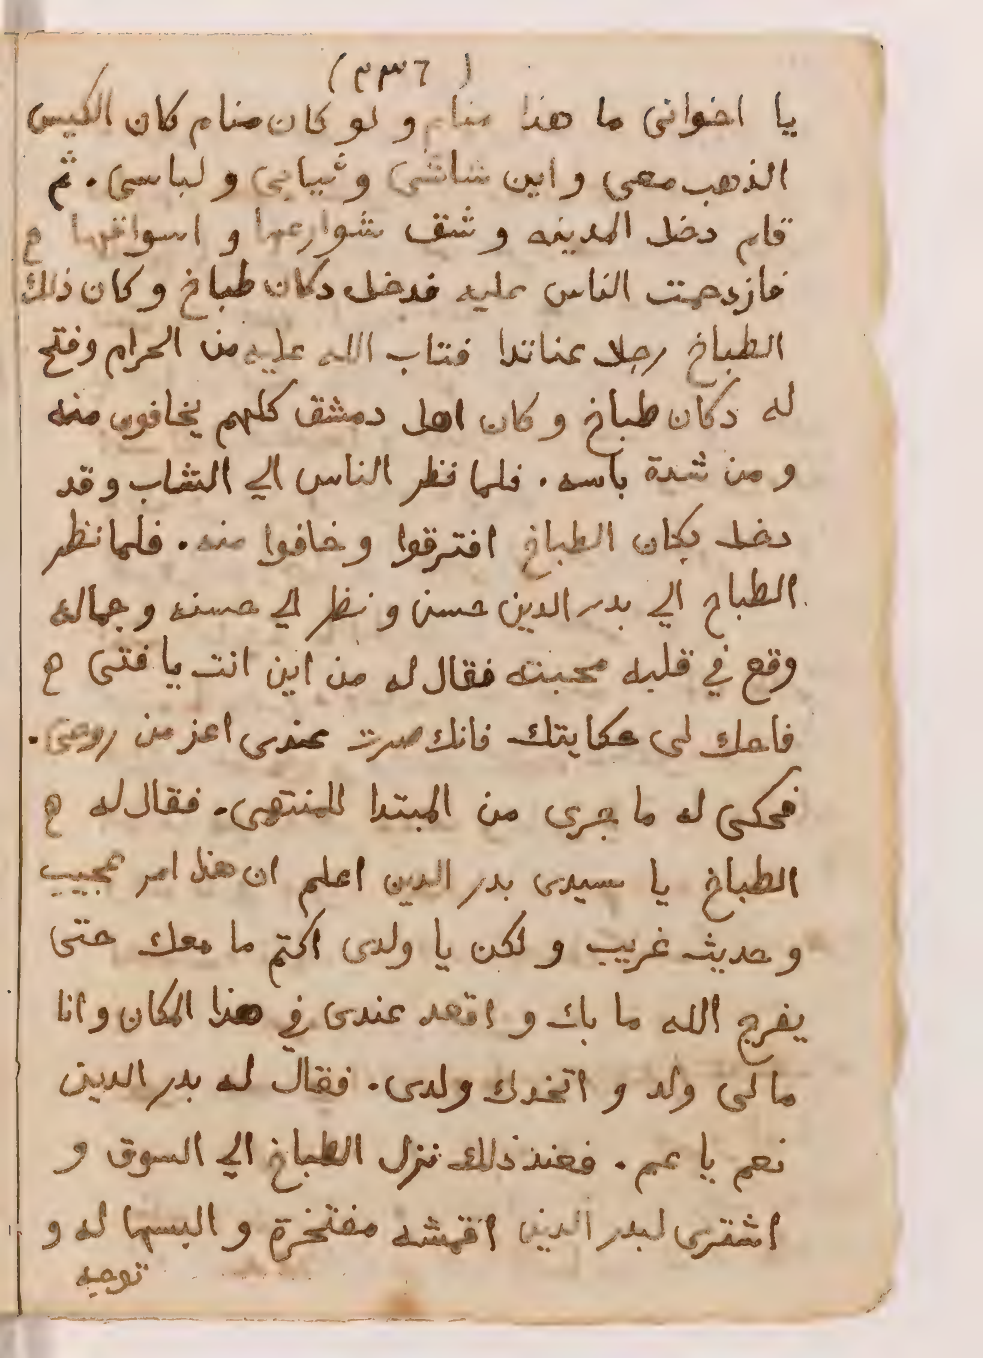 (٣٣٦)
يا اخوانى ما هذا منام و لو كان منام كان الكيس
الذهب معى و اين شاشى و ثيابى و لباسى . ثم
قام دخل المدينه و شق شوارعها و اسواقها ه
فازدحمت الناس عليه فدخل دكان طباخ و كان ذلك
الطباخ رجلا فتاب الله عليه من الحرام و فتح
له دكان طباخ و كان اهل دمشق كلهم يخافون منه
و من شدة باسه . فلما نظر الناس الي الشاب و قد
دخل دكان الطباخ افترقوا و خافوا منه . فلما نظر
الطباخ الي بدر الدين حسن و نظر الي حسنه و جماله
وقع في قلبه محبته فقال له من اين انت يا فتى ه
فاحك لى حكايتك فانك صرت عندى اعز من روحى .
فحكى له ما جرى من المبتدا للمنتهى . فقال له ه
الطباخ يا سيدى بدر الدين اعلم ان هذا امر عجيب
و حديث غريب و لكن يا ولدى اكتم ما معك حتى
يفرج الله ما بك و اقعد عندى في هذا المكان و انا
ما لى ولد و اتخدك ولدى . فقال له بدر الدين
نعم يا عم . فعند ذلك نزل الطباخ الي السوق و
اشترى لبدر الدين اقمشه مفتخرة و البسها له و
توجه